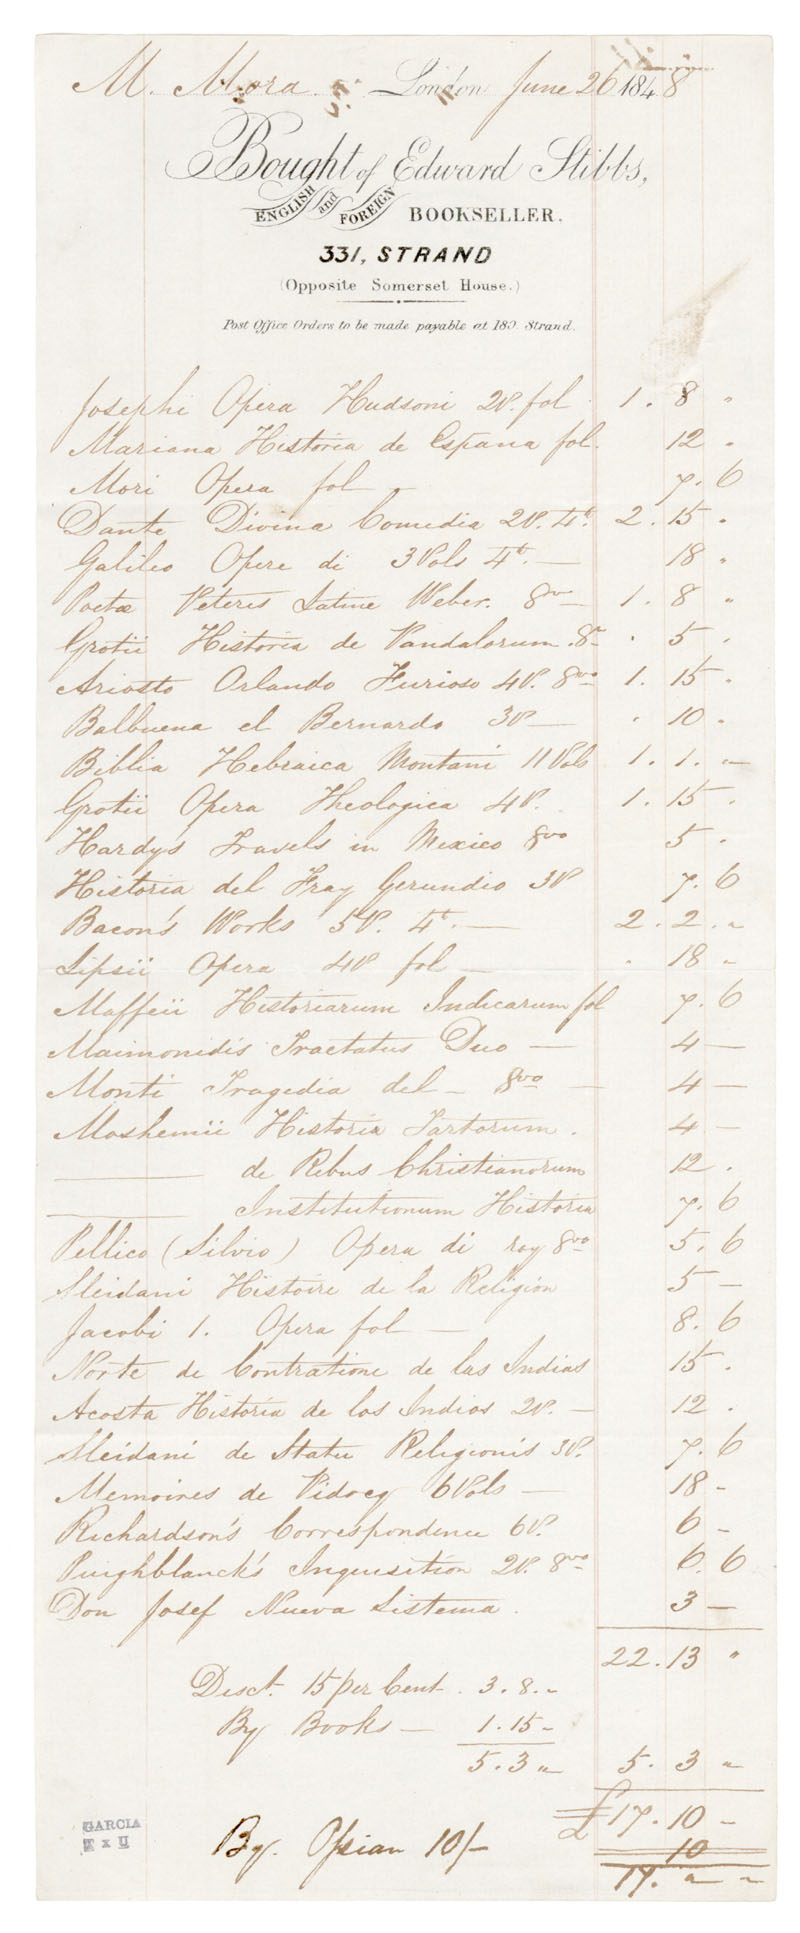 M. Mora. London June 26 1848
Bought of Edward Stibbs,
ENGLISH and FOREIGN BOOKSELLER.
331, STRAND
(Opposite Somerset House.)
Post Office Orders to be made payable at 180. Strand.
Josephi Opera Hudsoni 2V. fol 1. 8 "
Mariana Historia de España fol. 12 "
Mori Opera fol — 7. 6
Dante Divina Comedia 2V. 4t. 2. 15 "
Galileo Opere di 3 Vols 4t. — 18 "
Poetæ Veteris Latine Weber. 8vo — 1. 8 "
Grotii Historia de Vandalorum. 8o . 5 .
Ariosto Orlando Furioso 4V. 8vo 1. 15 "
Balbuena el Bernardo 3V — . 10 .
Biblia Hebraica Montani 11 Vols 1. 1. "
Grotii Opera Theologica 4V. 1. 15 .
Hardys Travels in Mexico 8vo 5 .
Historia del Fray Gerundio 3V 7. 6
Bacon's Works 5V. 4t. — 2. 2. "
Lipsii Opera 4V fol — . 18 "
Maffeii Historiarum Indicarum fol 7. 6
Maimonidis Tractatus Duo — 4 —
Monti Tragedia del — 8vo — 4 —
Moshemii Historia Tartorum. 4 —
——— de Rebus Christianorum 12 .
——— Institutionum Historia 7. 6
Pellico (Silvio) Opera di roy 8vo 5. 6
Sleidani Histoire de la Religion 5 —
Jacobi 1. Opera fol — 8. 6
Norte de Contratione de las Indias 15 .
Acosta Historia de los Indios 2V. — 12 .
Sleidani de Statu Religionis 3V. 7. 6
Memoires de Vidocq 6 Vols — 18 -
Richardson's Correspondence 6V. 6 -
Puighblanck's Inquisition 2V. 8vo 6. 6
Don Josef Nueva Sistema. 3 —
22. 13 "
Disct. 15 per Cent. 3. 8. "
By Books — 1. 15 "
5. 3 " 5. 3 "
£17. 10 -
By. Ossian 10/- 10
17. " "
GARCIA